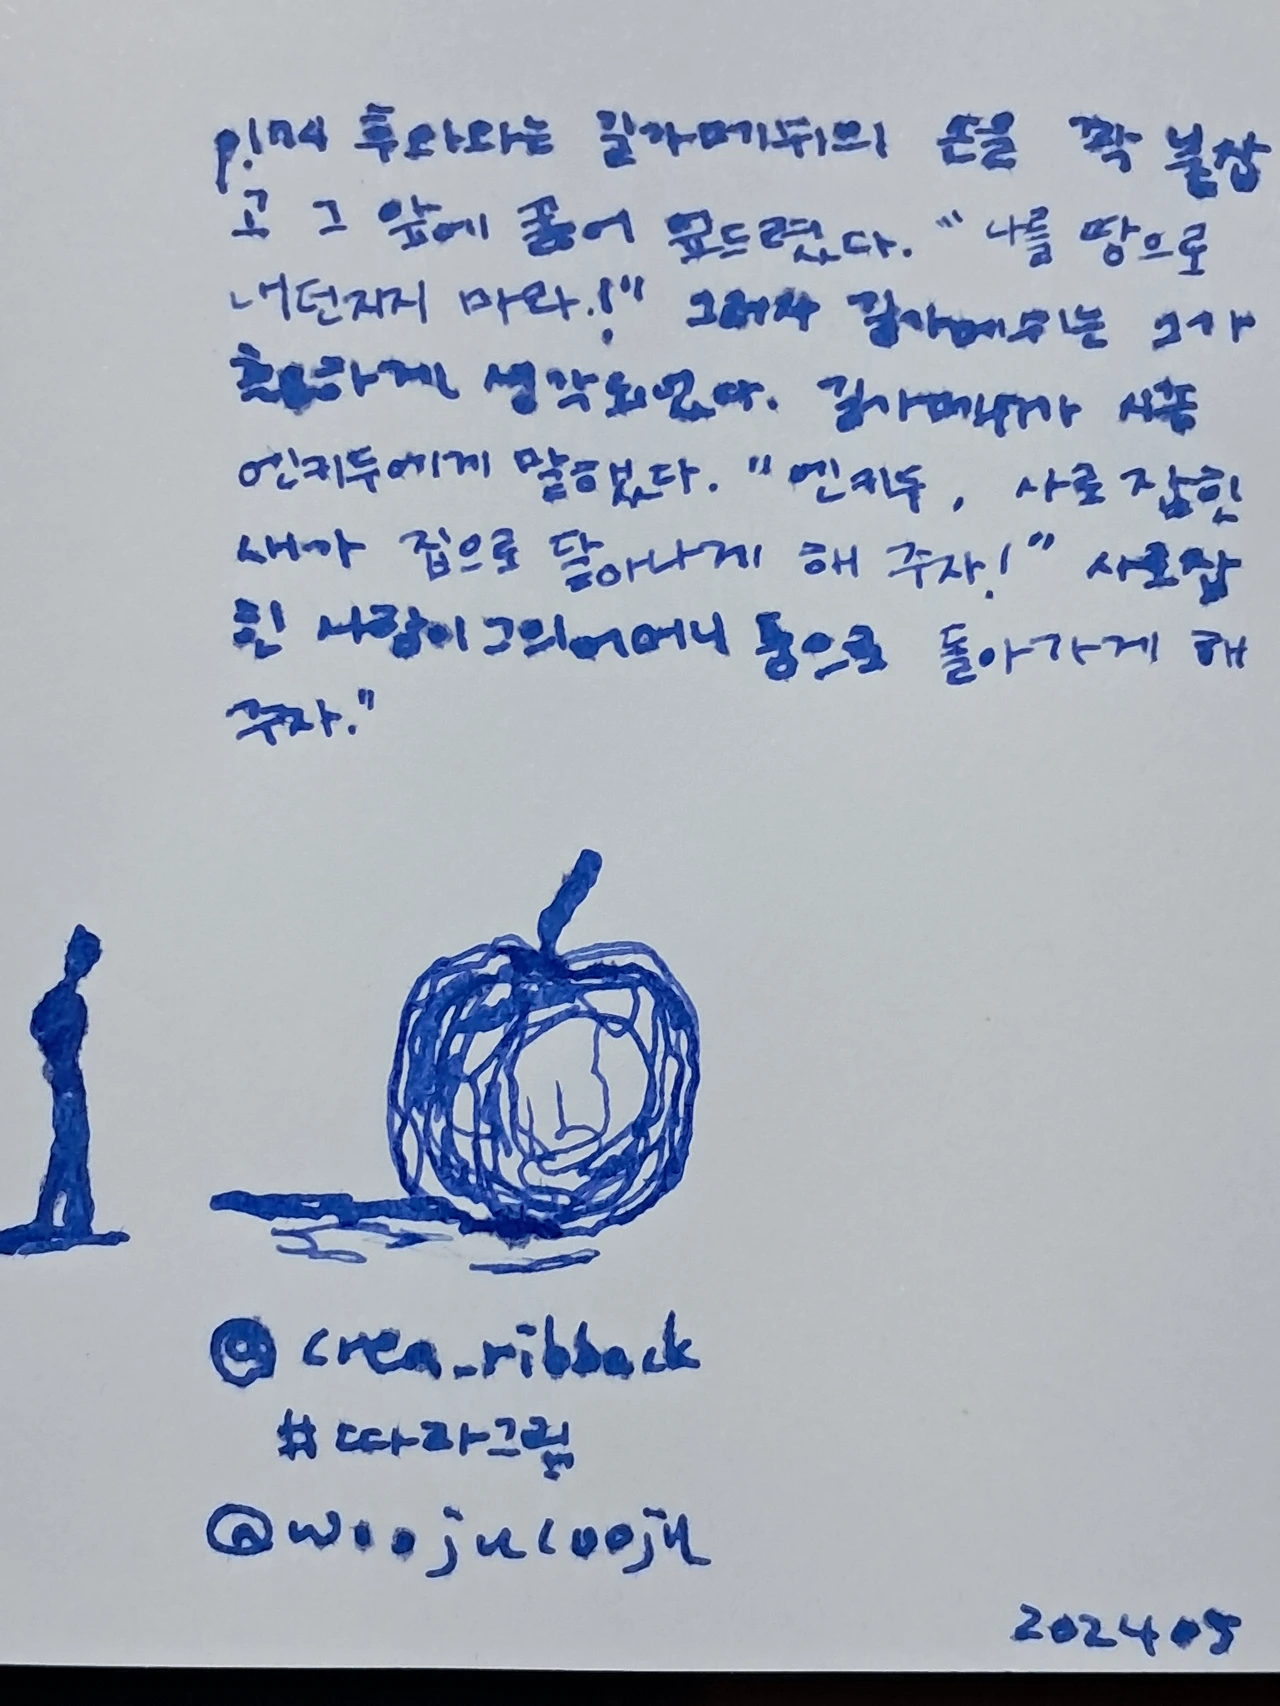 p.174 후와와는 길가메쉬의 손을 꽉 붙잡
고 그 앞에 꿇어 엎드렸다. "나를 땅으로
내던지지 마라!" 그러자 길가메쉬는 그가
측은하게 생각되었다. 길가메쉬가 시종
엔키두에게 말했다. "엔키두, 사로 잡힌
새가 집으로 달아나게 해 주자!" 사로잡
힌 사람이 그의 어머니 품으로 돌아가게 해
주자."
@crea_ribback
#따라그림
@woojucooju
202405